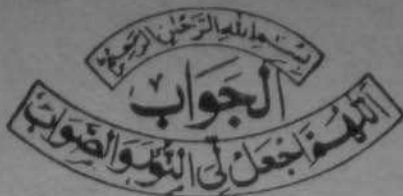 بِسْمِ اللهِ الرَّحْمٰنِ الرَّحِيْمِ
اَلجَوَاب
اَللّٰهُمَّ اجْعَلْ لِّی النُّوْرَ وَالصَّوَابَ